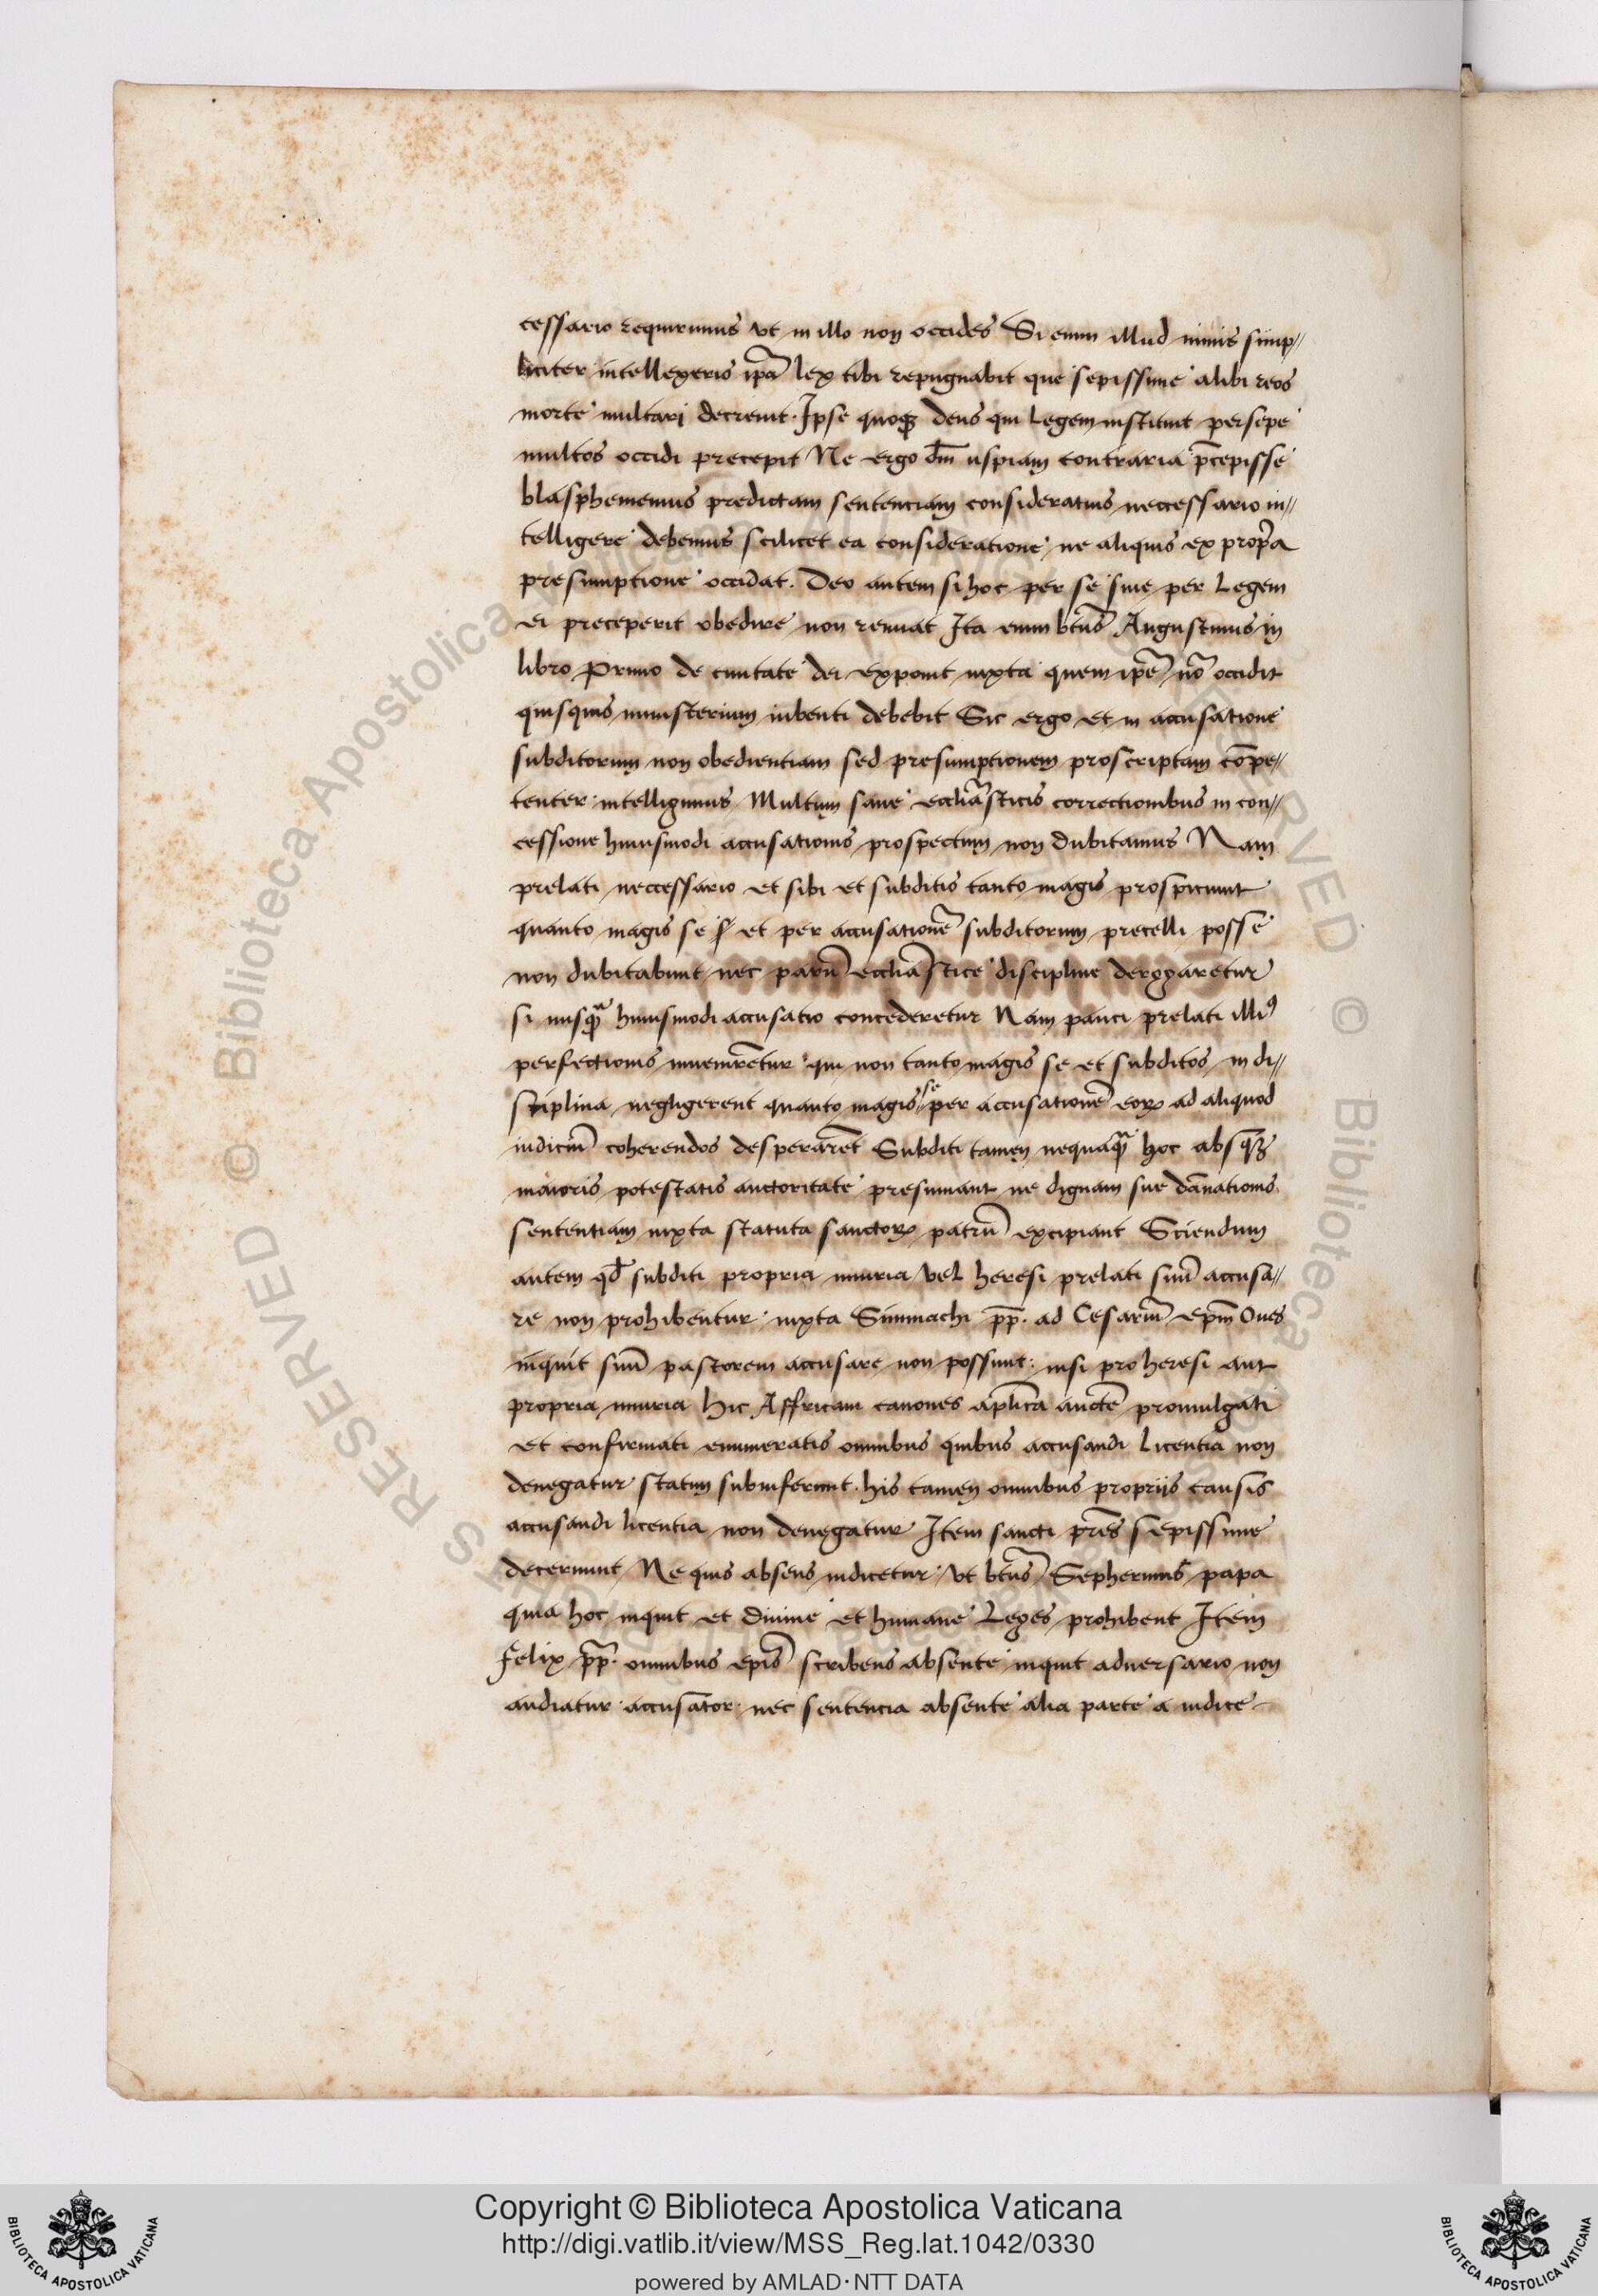 cessario requirimus vt in illo non occides Si enim illud nimis simp//
liciter intellexeris ip̃a lex tibi repugnabit que sepissime alibi reos
morte multari decreuit. Ipse quoqꝫ deus qui Legem instituit persepe
multos occidi precepit Ne ergo dm̃ uspiam contraria p̃cepisse
blasphememus predictam sentenciam consideratius neccessario in//
telligere debemus scilicet ea consideratione ne aliquis ex prop̃a
presumptione occidat. Deo autem si hoc per se siue per Legem
ei preceperit obedire non renuat Ita enim btũs Augustinus in
libro Primo de ciuitate dei exponit iuxta quem ip̃e nõ occidit
quisquis ministerium iubenti debebit Sic ergo et in accusatione
subditorum non obedientiam sed presumptionem proscriptam cõpe//
tenter intelligimus Multum sane eccliãsticis correctionibus in con//
cessione huiusmodi accusationis prospectum non dubitamus Nam
prelati neccessario et sibi et subditis tanto magis prospiciunt
quanto magis se et per accusationẽ subditorum precelli posse
non dubitabunt nec parũ eccliãstice discipline derogaretur
si nusq̃ huiusmodi accusatio concederetur Nam pauci prelati illiꝰ
perfectionis inuenirẽtur qui non tanto magis se et subditos in di//
sciplina negligerent quanto magis se per accusationẽ eoꝝ ad aliquod
iudiciũ coherendos desperarẽt Subditi tamen nequaq̃ hoc absqꝫ
maioris potestatis auctoritate presumant ne dignam sue dãnationis
sententiam iuxta statuta sanctoꝝ patrũ excipiant Sciendum
autem qd̃ subditi propria iniuria vel heresi prelati suũ accusa//
re non prohibentur iuxta Simmachi pp̃. ad Cesariũ ep̃m Oues
inquit suũ pastorem accusare non possunt: nisi pro heresi aut
propria iniuria hic Affricani canones aplĩca auctẽ promulgati
et confirmati enumeratis omnibus quibus accusandi Licentia non
denegatur statim subinferunt. his tamen omnibus proprijs causis
accusandi licentia non denegatur Item sancti pr̃es sepissime
decernunt Ne quis absens iudicetur vt btũs Sepherinus papa
quia hoc inquit et Diuine et humane Leges prohibent Item
Felix pp̃. omnibus ep̃is scribens absente inquit aduersario non
audiatur accusator nec sentencia absente alia parte a iudice
Copyright © Biblioteca Apostolica Vaticana
http://digi.vatlib.it/view/MSS_Reg.lat.1042/0330
powered by AMLAD·NTT DATA
BIBLIOTECA APOSTOLICA VATICANA
BIBLIOTECA APOSTOLICA VATICANA